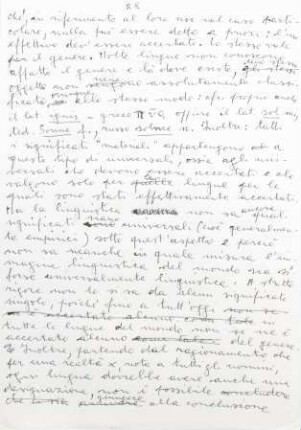 88
che', au riferimento al loro uso nel caso parti-
colare, nulla può essere detto a priori: l'uso
effettivo dev'essere accertato. Lo stesso vale
per il genere. Molte lingue non conoscono
affatto il genere e là dove esiste,
oggetto non assolutamente classi-
ficato, allo stesso modo: cfr. proprio
il lat ignis – greco πῦρ, oppure il lat sol m.,
ted. Sonne f., russo solnce n. Inoltre: tutti
i significati "materiali" appartengono a
questo tipo di universali, ossia agli uni-
versali che devono essere accertati e che
valgono solo per quelle lingue per le
quali sono stati effettivamente accertati.
Ma la linguistica non sa ancora quali
significati siano universali (cioè generalmen-
te empirici) sotto quest'aspetto e perciò
non sa neanche in quale misura l'im-
magine linguistica del mondo sia
forse universalmente linguistica. A stretto
rigore non lo si sa di alcun significato
singolo, poiché fino a tutt'oggi
tutte le lingue del mondo non se ne è
accertato alcuno del genere
E inoltre, partendo dal ragionamento che
per una realtà x, nota a tutti gli uomini,
ogni lingua dovrebbe avere anche una
designazione, non è possibile
giungere alla conclusione